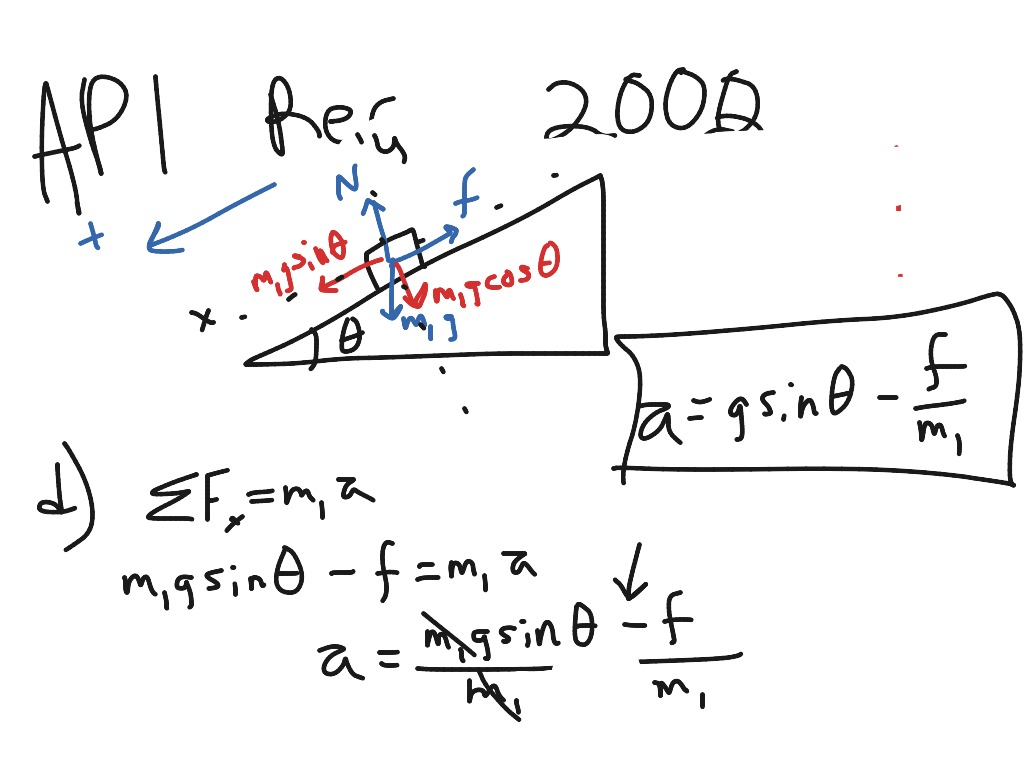 API Rev 2000
N
f
+
m₁g sinθ
m₁g cosθ
x
m₁g
θ
a = g sinθ - f/m₁
d) ΣFₓ = m₁a
m₁g sinθ - f = m₁a
a = m₁g sinθ/m₁ - f/m₁